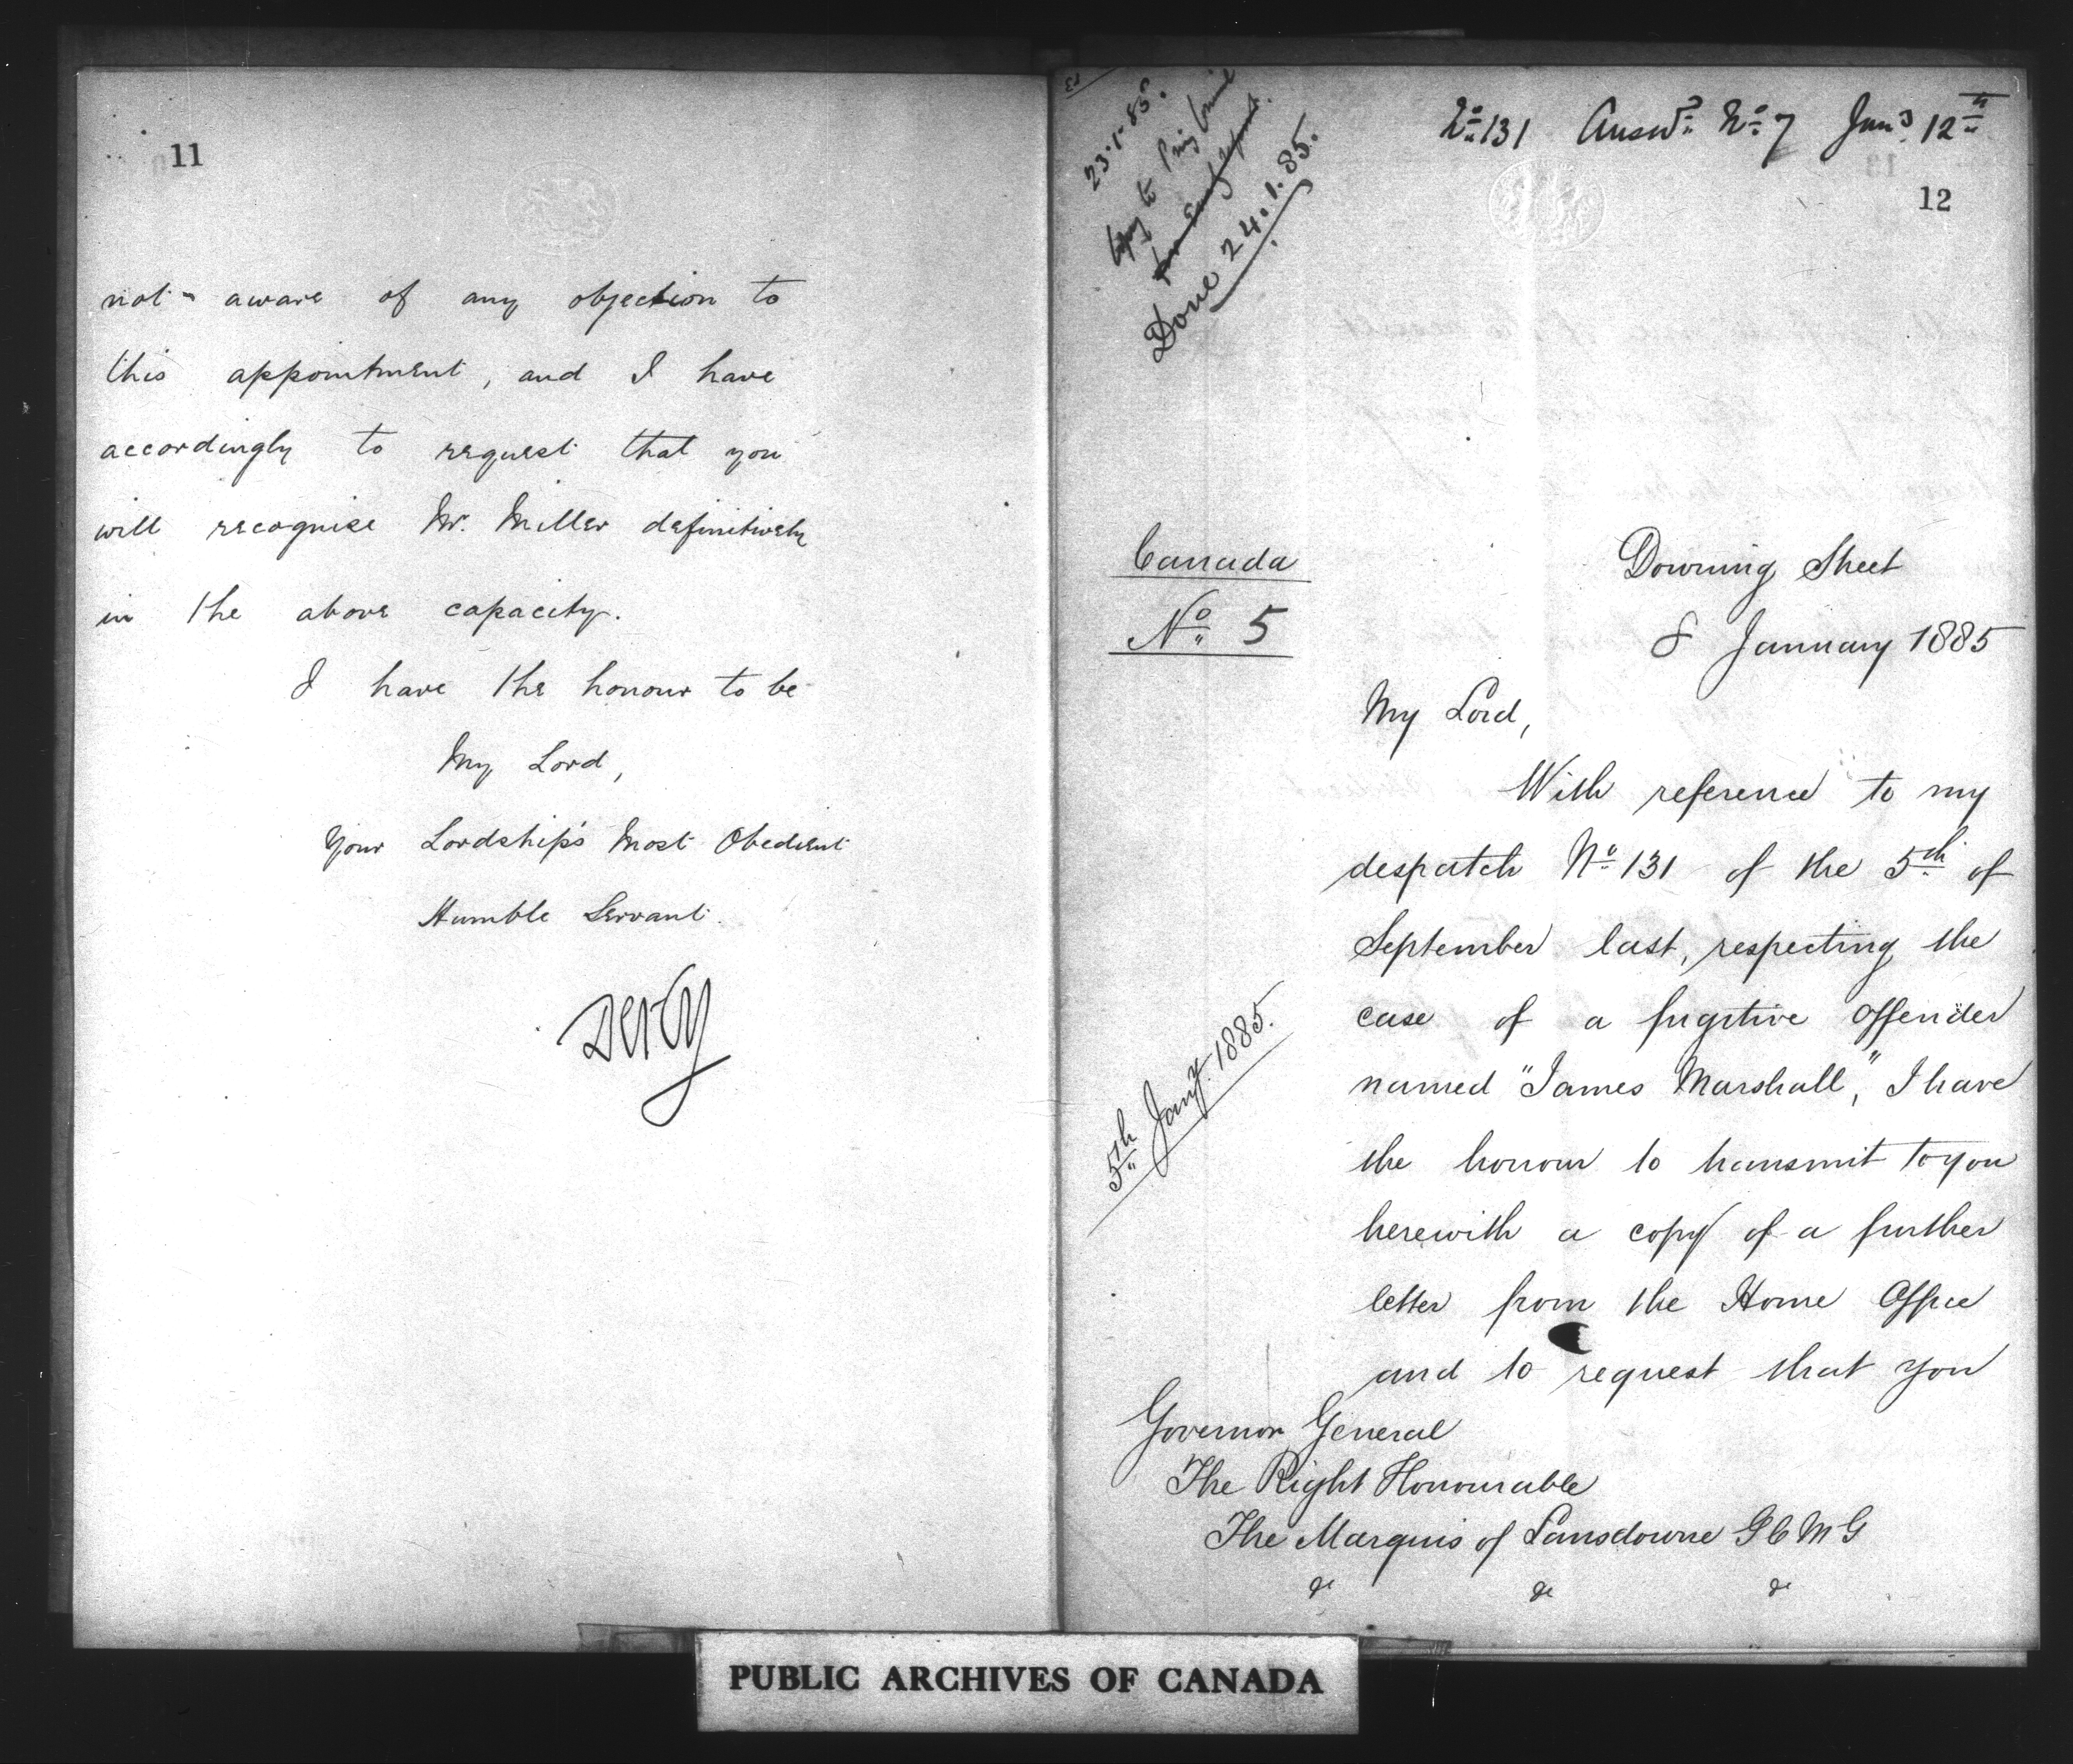 11
not aware of any objection to
this appointment, and I have
accordingly to request that you
will recognise Mr. Miller definitively
in the above capacity.
I have the honour to be
My Lord,
Your Lordship's Most Obedient
Humble Servant.
Derby
No 131 Answd No 7 Jany 12th
12
23.1.85.
Copy to Privy Council
for Early report.
Done 24.1.85.
Canada
No 5
Downing Street
8 January 1885
My Lord,
With reference to my
despatch No 131 of the 5th of
September last, respecting the
case of a fugitive offender
named "James Marshall," I have
the honour to transmit to you
herewith a copy of a further
letter from the Home Office
and to request that you
5th Jany. 1885.
Governor General
The Right Honourable
The Marquis of Lansdowne GCMG
&c &c &c
PUBLIC ARCHIVES OF CANADA